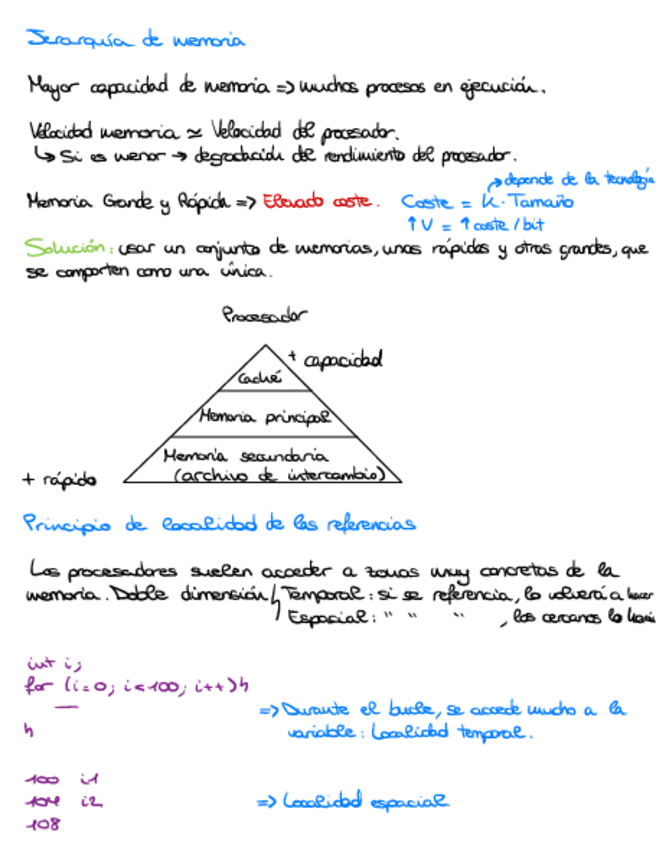 Jerarquía de memoria
Mayor capacidad de memoria => muchos procesos en ejecución.
Velocidad memoria ≃ Velocidad del procesador.
↳ Si es menor → degradación del rendimiento del procesador.
depende de la tecnología
Memoria Grande y Rápida => Elevado coste. Coste = K · Tamaño
↑V = ↑coste / bit
Solución: usar un conjunto de memorias, unas rápidas y otras grandes, que
se comporten como una única.
Procesador
+ capacidad
Caché
Memoria principal
Memoria secundaria
(archivo de intercambio)
+ rápido
Principio de localidad de las referencias
Los procesadores suelen acceder a zonas muy concretas de la
memoria. Doble dimensión Temporal: si se referencia, lo volverá a hacer
Espacial: " " " , los cercanos lo
int i;
for (i=0; i<100; i++){
=> Durante el bucle, se accede mucho a la
}
variable: Localidad temporal.
100 i1
104 i2 => Localidad espacial
108